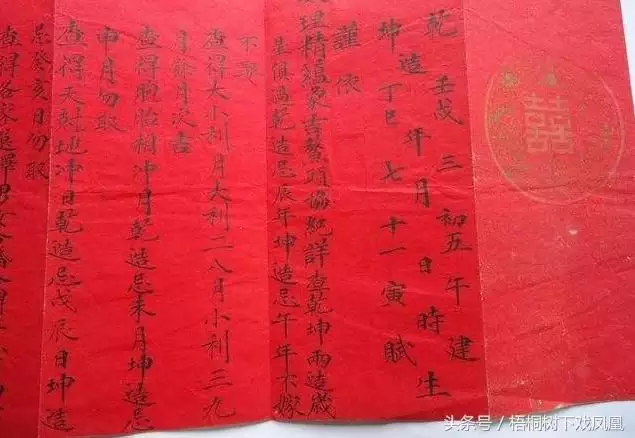 囍
乾壬戌三初五午建
造年月日時生
坤丁巳七十一寅賦
謹依
理精蘊象吉鰲頭協紀詳查乾坤兩造歲
星俱過乾造忌辰年坤造忌午年不嫁
不娶
查得大小利月大利二八月小利三九
月餘月次吉
查得胞胎相冲月乾造忌未月坤造忌
申月勿取
查得天尅地冲日乾造忌戊辰日坤造
忌癸亥日勿取
查得各家
男女合婚
头条号／梧桐树下戏凤凰